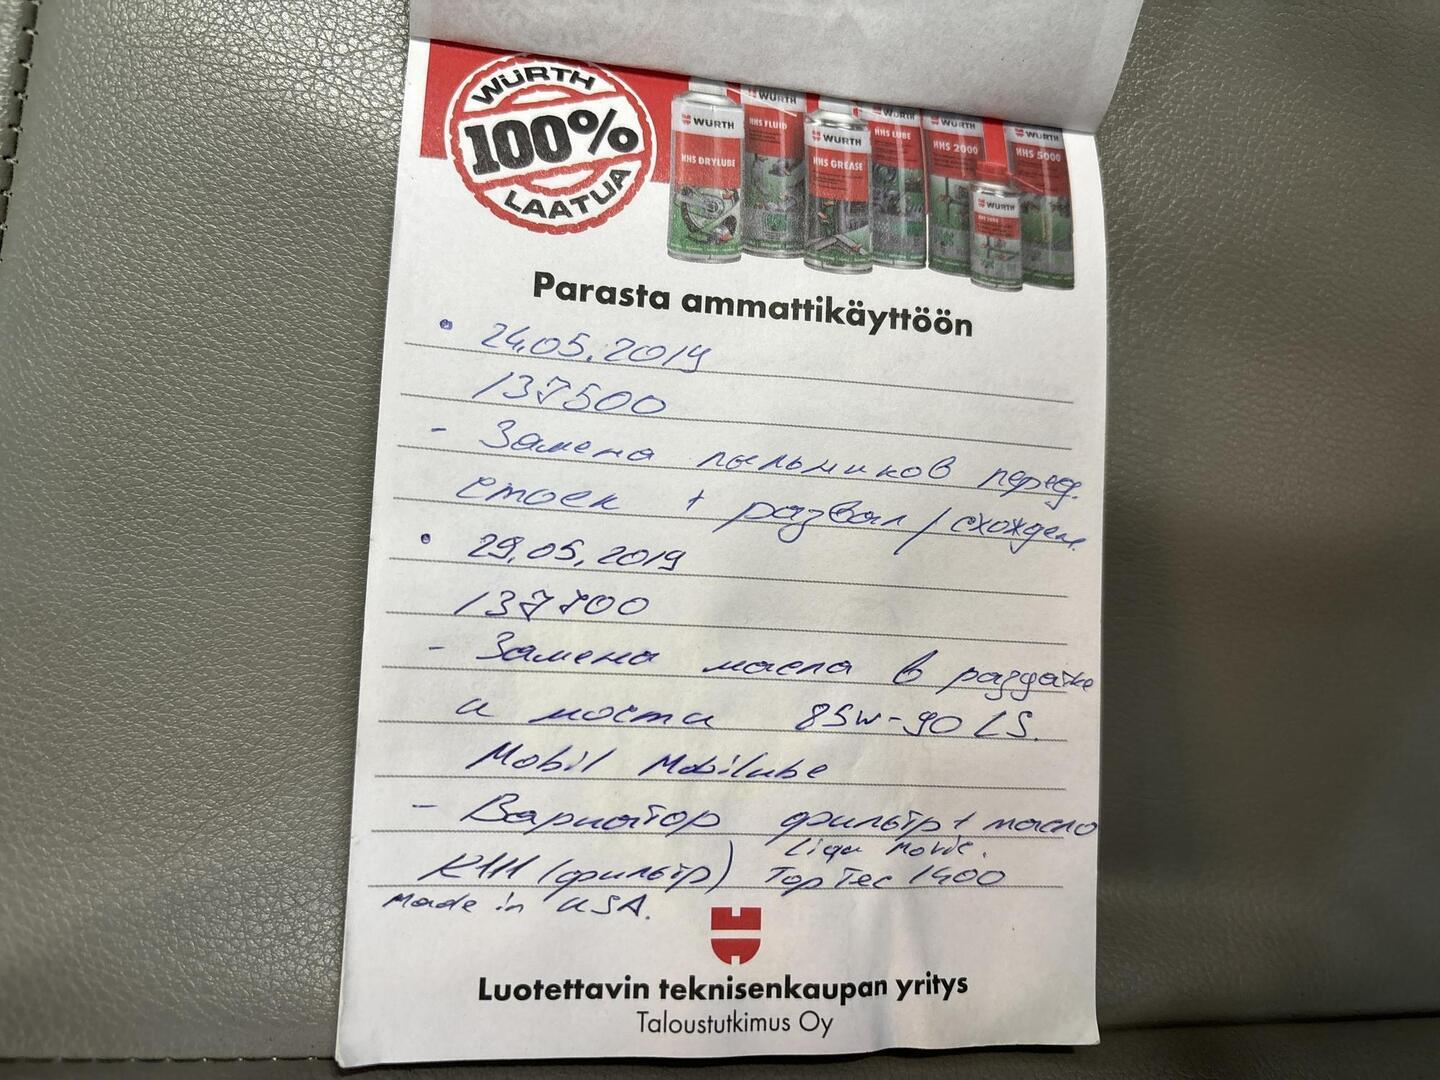 WÜRTH
100%
LAATUA
WÜRTH
HHS DRYLUBE
WÜRTH
HHS FLUID
WÜRTH
HHS GREASE
WÜRTH
HHS LUBE
WÜRTH
HHS 2000
WÜRTH
HHS 5000
WÜRTH
Parasta ammattikäyttöön
• 24.05.2019
137500
- Замена пыльников перед.
стоек + развал/схожден.
• 29.05.2019
137700
- Замена масла в раздатке
и моста 85W-90 LS.
Mobil Mobilube
- Вариатор фильтр + масло
Liqui Molie.
(фильтр) TopTec 1400
Made in USA.
Luotettavin teknisenkaupan yritys
Taloustutkimus Oy